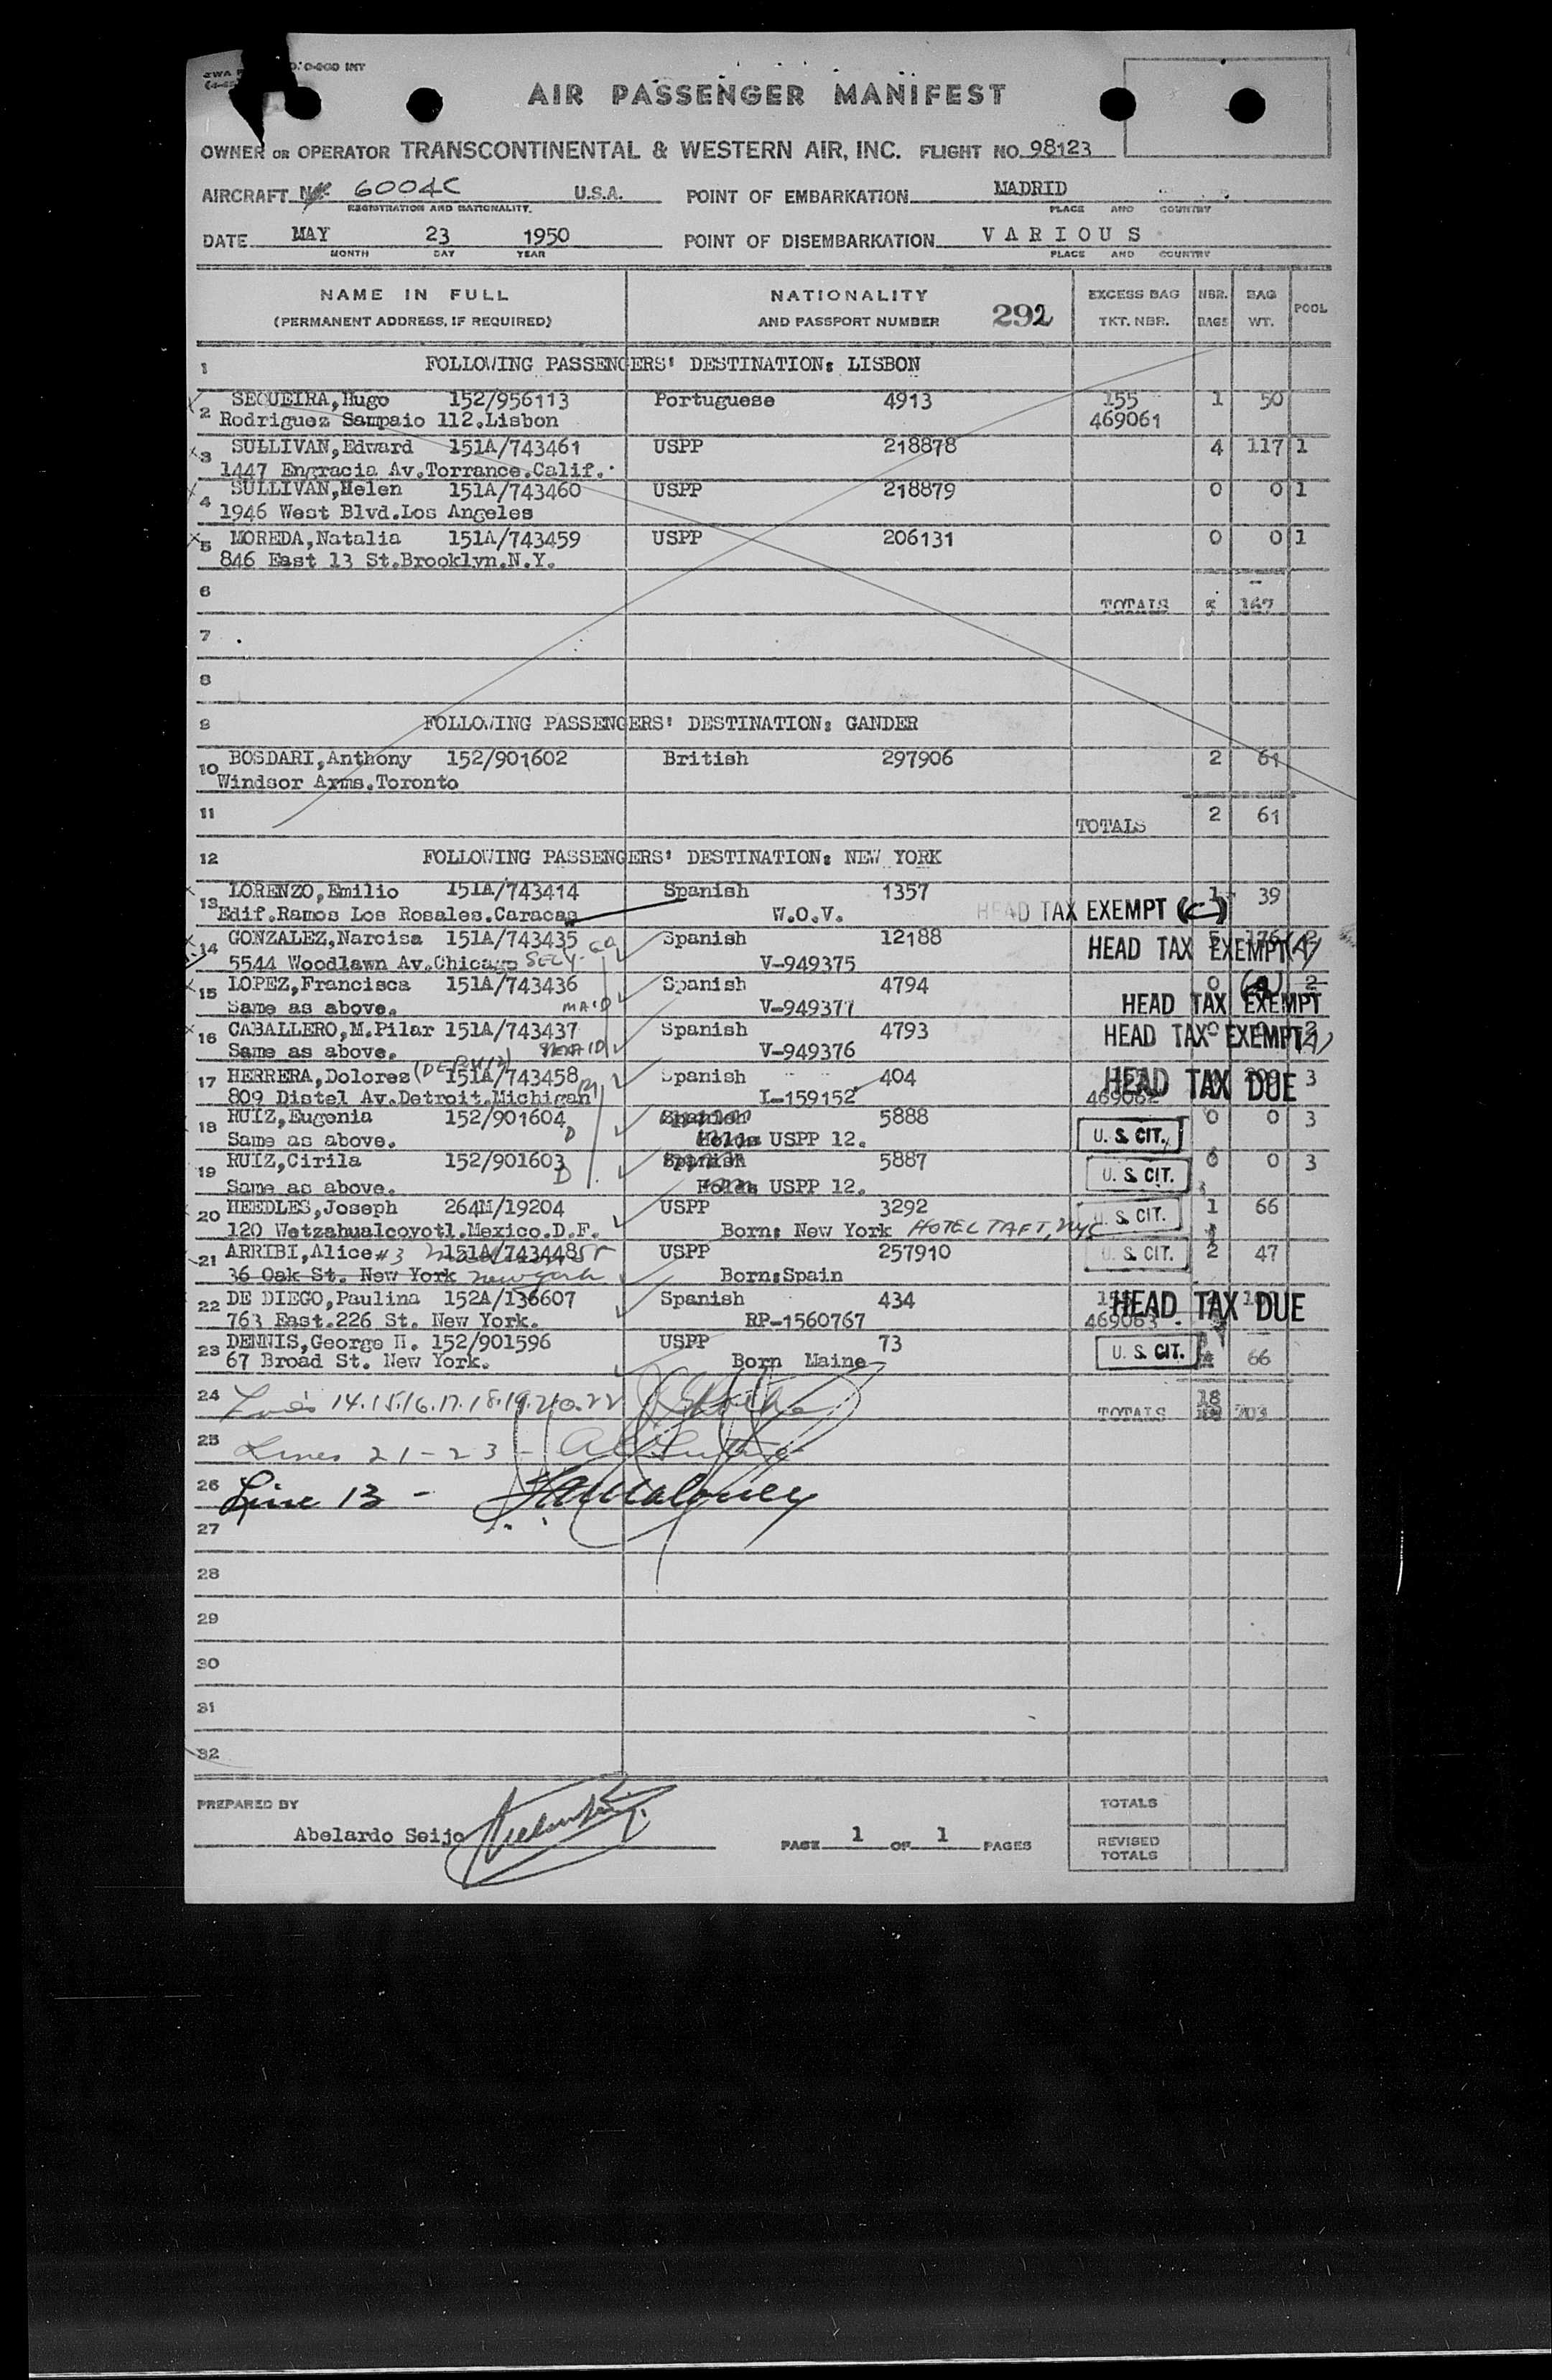 O-200 INT
AIR PASSENGER MANIFEST
OWNER OR OPERATOR TRANSCONTINENTAL & WESTERN AIR, INC. FLIGHT NO. 98123
AIRCRAFT 6004C U.S.A. POINT OF EMBARKATION MADRID
REGISTRATION AND NATIONALITY. PLACE AND COUNTRY
DATE MAY 23 1950 POINT OF DISEMBARKATION VARIOUS
MONTH DAY YEAR PLACE AND COUNTRY
NAME IN FULL NATIONALITY EXCESS BAG NBR. BAG POOL
(PERMANENT ADDRESS, IF REQUIRED) AND PASSPORT NUMBER 292 TKT. NBR. BAGS WT.
1 FOLLOWING PASSENGERS' DESTINATION: LISBON
2 SEQUEIRA,Hugo 152/956113 Portuguese 4913 155 1 50
Rodriguez Sampaio 112.Lisbon 469061
3 SULLIVAN,Edward 151A/743461 USPP 218878 4 117 1
1447 Engracia Av.Torrance.Calif.
4 SULLIVAN,Helen 151A/743460 USPP 218879 0 0 1
1946 West Blvd.Los Angeles
5 MOREDA,Natalia 151A/743459 USPP 206131 0 0 1
846 East 13 St.Brooklyn.N.Y.
6 TOTALS 5 167
7
8
9 FOLLOWING PASSENGERS' DESTINATION: GANDER
10 BOSDARI,Anthony 152/901602 British 297906 2 61
Windsor Arms.Toronto
11 TOTALS 2 61
12 FOLLOWING PASSENGERS' DESTINATION: NEW YORK
13 LORENZO,Emilio 151A/743414 Spanish 1357 1 39
Edif.Ramos Los Rosales.Caracas W.O.V. HEAD TAX EXEMPT (C)
14 GONZALEZ,Narcisa 151A/743435 Spanish 12188 HEAD TAX EXEMPT (A)
5544 Woodlawn Av.Chicago SECY. V-949375
15 LOPEZ,Francisca 151A/743436 Spanish 4794 0 2
Same as above. MAID V-949377 HEAD TAX EXEMPT
16 CABALLERO,M.Pilar 151A/743437 Spanish 4793 HEAD TAX EXEMPT (A)
Same as above. MAID V-949376
17 HERRERA,Dolores 151A/743458 Spanish 404 HEAD TAX DUE 3
809 Distel Av.Detroit.Michigan I-159152 469062
18 RUIZ,Eugenia 152/901604 Spanish 5888 0 0 3
Same as above. D Holds USPP 12. U. S. CIT.
19 RUIZ,Cirila 152/901603 Spanish 5887 0 0 3
Same as above. D Holds USPP 12. U. S. CIT.
20 HEEDLES,Joseph 264M/19204 USPP 3292 1 66
120 Wetzahualcoyotl.Mexico.D.F. Born: New York HOTEL TAFT, NYC U. S. CIT.
21 ARRIBI,Alice #3 151A/743448 USPP 257910 U. S. CIT. 2 47
36 Oak St. New York New York Born:Spain
22 DE DIEGO,Paulina 152A/136607 Spanish 434 HEAD TAX DUE
763 East.226 St. New York. RP-1560767 469063
23 DENNIS,George H. 152/901596 USPP 73 U. S. CIT. 66
67 Broad St. New York. Born Maine
24 14.15.16.17.18.19.20.22 TOTALS 18 703
25 Lines 21-23 -
26 Line 13 - Maloney
27
28
29
30
31
32
PREPARED BY TOTALS
Abelardo Seijo PAGE 1 OF 1 PAGES REVISED TOTALS